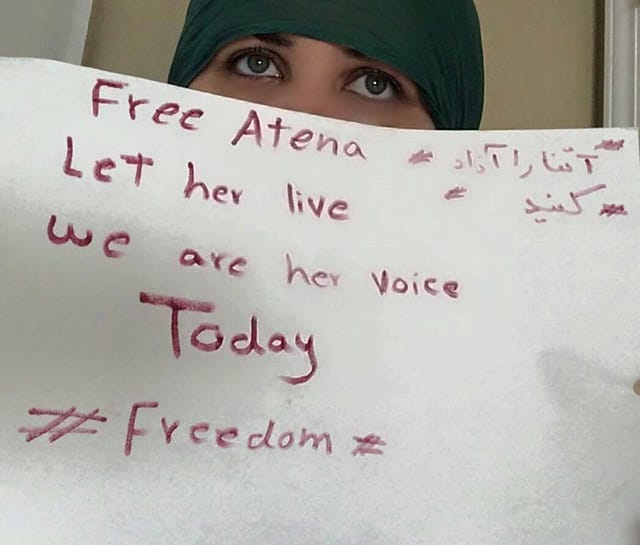 Free Atena
Let her live
We are her voice
Today
# Freedom #
# آتنا را آزاد #
# کنید #